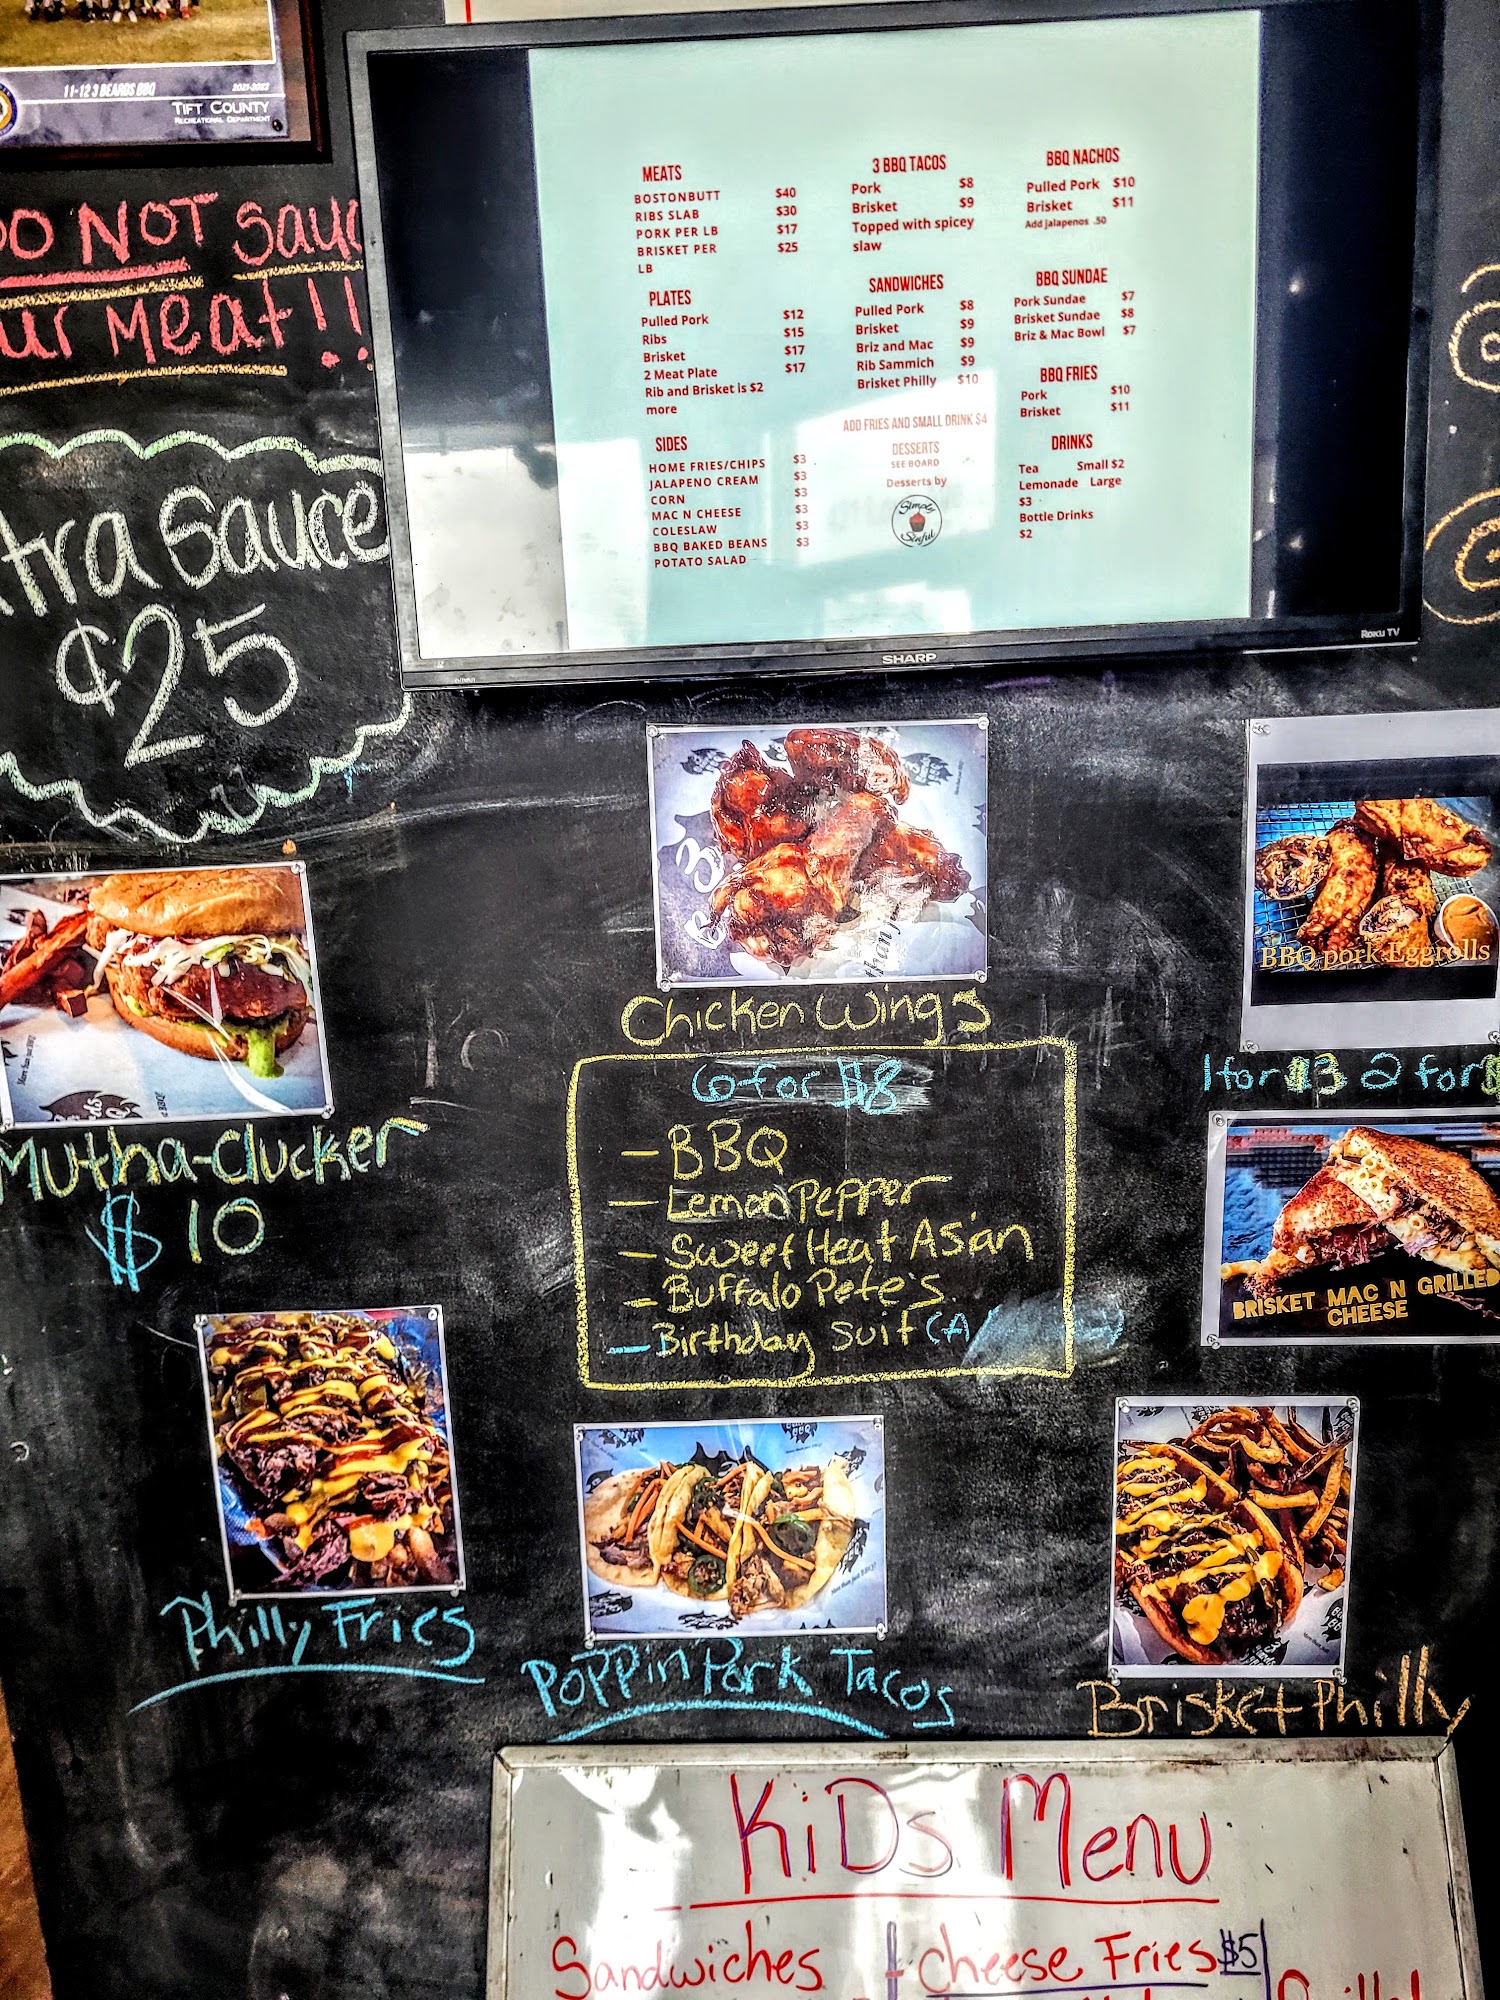 11-12 3 BEARDS BBQ
2021-2022
TIFT COUNTY
RECREATIONAL DEPARTMENT
DO NOT Sauc
our Meat!!
xtra Sauce
¢25
MEATS
BOSTONBUTT $40
RIBS SLAB $30
PORK PER LB $17
BRISKET PER $25
LB
PLATES
Pulled Pork $12
Ribs $15
Brisket $17
2 Meat Plate $17
Rib and Brisket is $2
more
SIDES
HOME FRIES/CHIPS $3
JALAPENO CREAM $3
CORN $3
MAC N CHEESE $3
COLESLAW $3
BBQ BAKED BEANS $3
POTATO SALAD
3 BBQ TACOS
Pork $8
Brisket $9
Topped with spicey
slaw
SANDWICHES
Pulled Pork $8
Brisket $9
Briz and Mac $9
Rib Sammich $9
Brisket Philly $10
ADD FRIES AND SMALL DRINK $4
DESSERTS
SEE BOARD
Desserts by
Simply
Sinful
BBQ NACHOS
Pulled Pork $10
Brisket $11
Add jalapenos .50
BBQ SUNDAE
Pork Sundae $7
Brisket Sundae $8
Briz & Mac Bowl $7
BBQ FRIES
Pork $10
Brisket $11
DRINKS
Tea Small $2
Lemonade Large
$3
Bottle Drinks
$2
SHARP
Roku TV
Chicken Wings
6 for $8
- BBQ
- Lemon Pepper
- Sweet Heat Asian
- Buffalo Pete's
- Birthday Suit
BBQ pork Eggrolls
1 for $3 2 for $
BRISKET MAC N GRILLED
CHEESE
Mutha-Clucker
$10
Philly Fries
Poppin Pork Tacos
Brisket Philly
KiDs Menu
Sandwiches
Cheese Fries $5